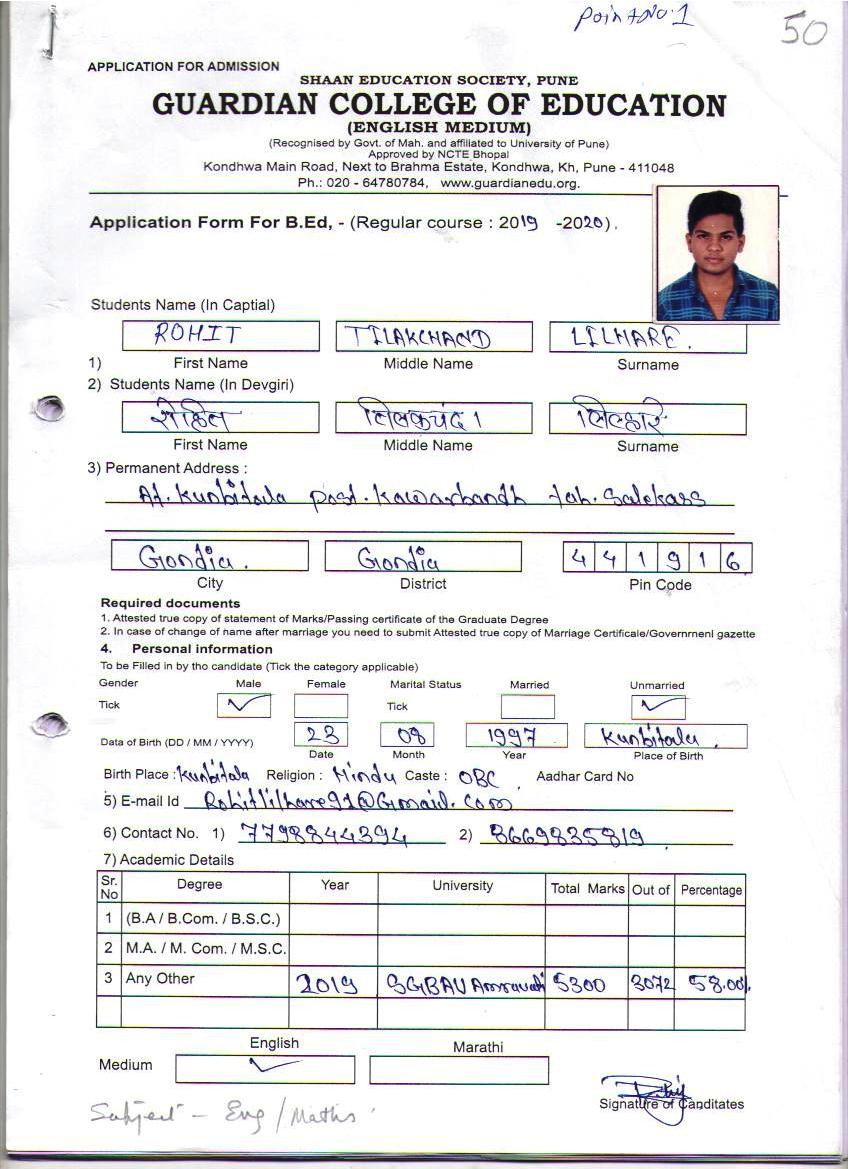 Point No. 1
50
APPLICATION FOR ADMISSION
SHAAN EDUCATION SOCIETY, PUNE
GUARDIAN COLLEGE OF EDUCATION
(ENGLISH MEDIUM)
(Recognised by Govt. of Mah. and affiliated to University of Pune)
Approved by NCTE Bhopal
Kondhwa Main Road, Next to Brahma Estate, Kondhwa, Kh, Pune - 411048
Ph.: 020 - 64780784, www.guardianedu.org.
Application Form For B.Ed, - (Regular course : 2019 -2020).
Students Name (In Captial)
ROHIT TILAKCHAND LILHARE.
1) First Name Middle Name Surname
2) Students Name (In Devgiri)
रोहित तिलकचंद। लिल्हारे
First Name Middle Name Surname
3) Permanent Address :
At. Kunbitola post. Kawarbandh tah. Salekasa
Gondia. Gondia 441916
City District Pin Code
Required documents
1. Attested true copy of statement of Marks/Passing certificate of the Graduate Degree
2. In case of change of name after marriage you need to submit Attested true copy of Marriage Certificale/Governrnenl gazette
4. Personal information
To be Filled in by tho candidate (Tick the category applicable)
Gender Male Female Marital Status Married Unmarried
Tick ✓ Tick ✓
Data of Birth (DD / MM / YYYY) 23 08 1997 Kunbitola.
Date Month Year Place of Birth
Birth Place : Kunbitola Religion : Hindu Caste : OBC Aadhar Card No
5) E-mail Id Rohitlilhare91@Gmail.com
6) Contact No. 1) 7798844394 2) 8669835819
7) Academic Details
Sr. No Degree Year University Total Marks Out of Percentage
1 (B.A / B.Com. / B.S.C.)
2 M.A. / M. Com. / M.S.C.
3 Any Other 2019 SGBAU Amravati 5300 3072 58.00%
English Marathi
Medium ✓
Signature of Canditates
Subject - Eng / Maths